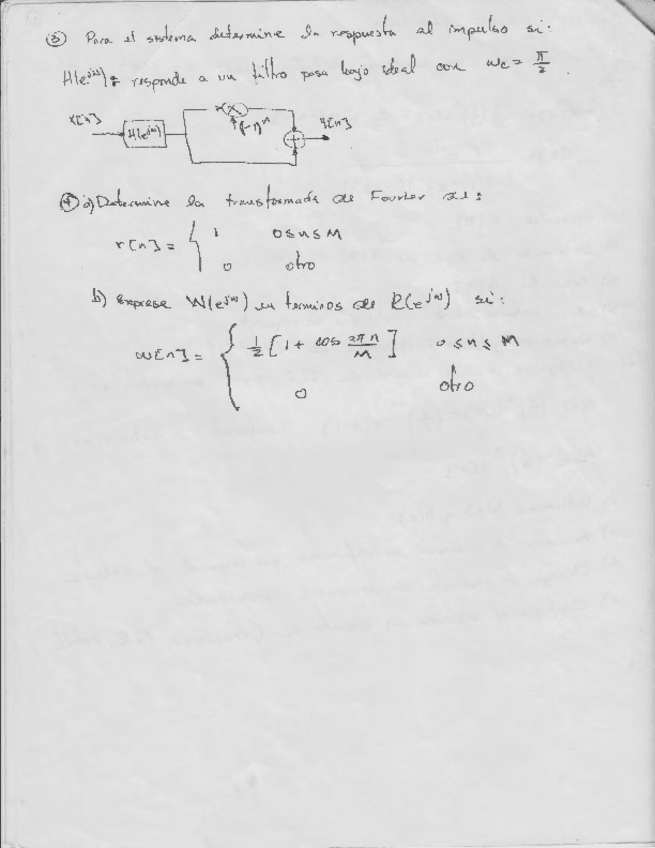 ③ Para el sistema determine la respuesta al impulso si:
H(e^{jω}): responde a un filtro pasa bajo ideal con ω_c = π/2.
x[n] H(e^{jω}) X (-1)^n + y[n]
④ a) Determine la transformada de Fourier de:
r[n] = { 1 0≤n≤M
0 otro
b) Exprese W(e^{jω}) en terminos de R(e^{jω}) si:
w[n] = { 1/2 [1 + cos 2πn/M] 0≤n≤M
0 otro